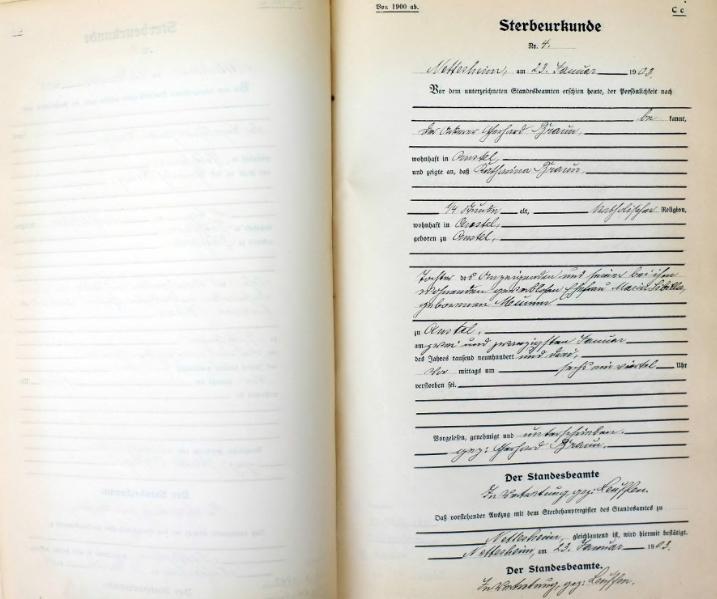 Von 1900 ab.
C c
Sterbeurkunde
Nr. 4.
Nettersheim, am 23. Januar 1903.
Vor dem unterzeichneten Standesbeamten erschien heute, der Persönlichkeit nach
be kannt,
der Ackerer Gerhard Braun,
wohnhaft in
und zeigte an, daß Katharina Braun,
1/4 Stunde alt, katholischer Religion,
wohnhaft in
geboren zu
Tochter des Anzeigenden und seiner bei ihm
wohnenden gewerblosen Ehefrau Maria Sibilla,
geborenen
zu
am zwei und zwanzigsten Januar
des Jahres tausend neunhundert und drei,
Vor mittags um sechs ein viertel Uhr
verstorben sei.
Vorgelesen, genehmigt und unterschrieben.
gez: Gerhard Braun.
Der Standesbeamte
In Vertretung gez.
Daß vorstehender Auszug mit dem Sterbehauptregister des Standesamtes zu
Nettersheim, gleichlautend ist, wird hiermit bestätigt.
Nettersheim, am 23. Januar 1903.
Der Standesbeamte.
In Vertretung, gez: